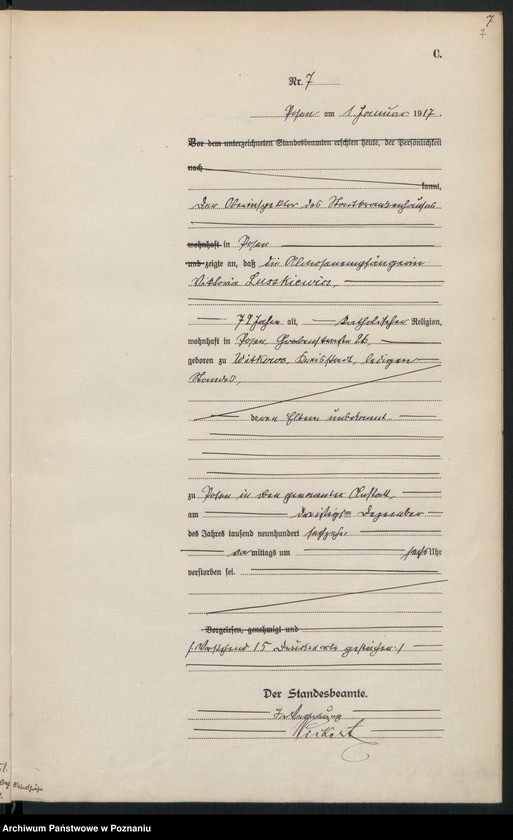 7
7
C.
Nr. 7
Posen am 1. Januar 1917.
Vor dem unterzeichneten Standesbeamten erschien heute, der Persönlichkeit
nach
kannt,
Der Oberinspektor des Stadtkrankenhauses
wohnhaft in Posen
und zeigte an, daß die Almosenempfängerin
Viktoria Lusskiewicz,
79 Jahre alt, katholischer Religion,
wohnhaft in Posen, Grabenstraße 26,
geboren zu Witkowo, Kreisstadt, ledigen
Standes,
deren Eltern unbekannt
zu Posen in oben genannter Anstalt
am dreißigsten Dezember
des Jahres tausend neunhundert sechzehn
mittags um sechs Uhr
verstorben sei.
Vorgelesen, genehmigt und
(Vorstehend 15 Druckworte gestrichen.)
Der Standesbeamte.
In Vertretung
Archiwum Państwowe w Poznaniu